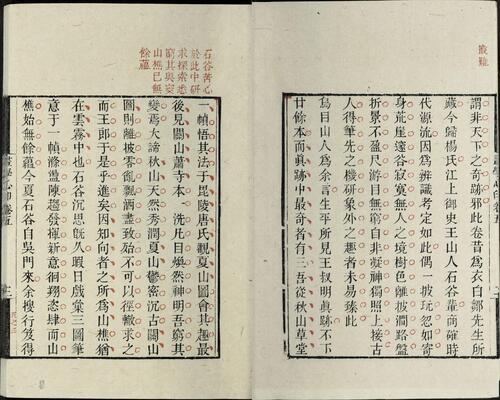 叢雜
謂非天下之奇跡邪此卷昔爲衣白鄒先生所
藏今歸楊氏江上御史王山人石谷輩商確時
代源流因爲辨識考定如此偶一披玩忽如寄
身荒崖邃谷寂寞無人之境樹色離披澗路盤
折景不盈尺游目無窮自非凝神獨照上接古
人得筆先之機研象外之趣者未易臻此
烏目山人爲余言生平所見王叔明眞跡不下
廿餘本而眞跡中最奇者有三吾從秋山草堂
石谷苦心
於此中研
求探索悉
窮其奥突
山樵已無
餘蘊
一幀悟其法于毘陵唐氏觀夏山圖會其趣最
後見關山蕭寺本一洗凡目煥然神明吾窮其
變焉大諦秋山天然秀潤夏山鬱密沉古關山
圖則離披零亂飄灑盡致殆不可以徑轍求之
而王郎于是乎進矣因知向者之所爲山樵猶
在雲霧中也石谷沉思旣久暇日戲彙三圖筆
意于一幀滌盪陳趨發揮新意徊翔恣肆而山
樵始無餘蘊今夏石谷自吳門來余搜行笈得